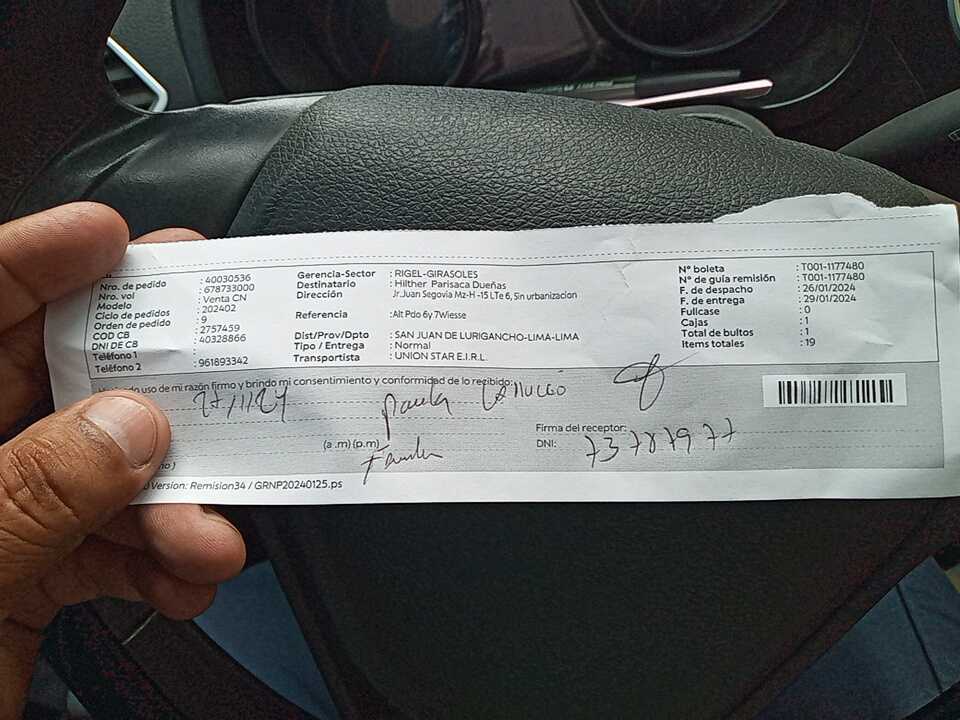 Nro. de pedido : 40030536
Nro. vol : 678733000
Modelo : Venta CN
Ciclo de pedidos : 202402
Orden de pedido : 9
COD CB : 2757459
DNI DE CB : 40328866
Teléfono 1 :
Teléfono 2 : 961893342
Gerencia-Sector : RIGEL-GIRASOLES
Destinatario : Hilther Parisaca Dueñas
Dirección : Jr.Juan Segovia Mz-H -15 LTe 6, Sin urbanizacion
Referencia : Alt Pdo 6y 7Wiesse
Dist/Prov/Dpto : SAN JUAN DE LURIGANCHO-LIMA-LIMA
Tipo / Entrega : Normal
Transportista : UNION STAR E.I.R.L.
N° boleta : T001-1177480
N° de guía remisión : T001-1177480
F. de despacho : 26/01/2024
F. de entrega : 29/01/2024
Fullcase : 0
Cajas : 1
Total de bultos : 1
Items totales : 19
uso de mi razón firmo y brindo mi consentimiento y conformidad de lo recibido:
27/1/24
Firma del receptor:
(a .m) (p.m)
DNI: 73787977
Version: Remision34 / GRNP20240125.ps